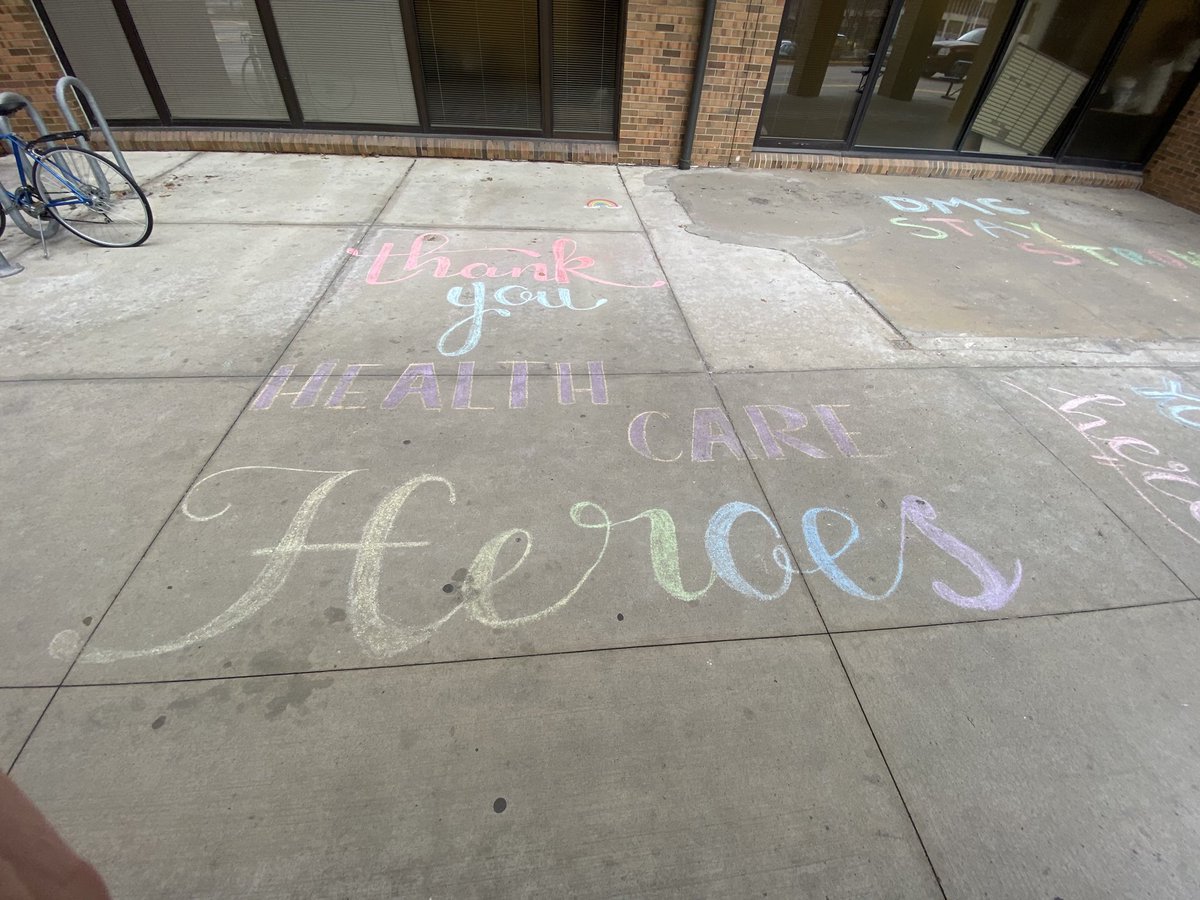 thank
you
HEALTH
CARE
Heroes
DMS
STAY